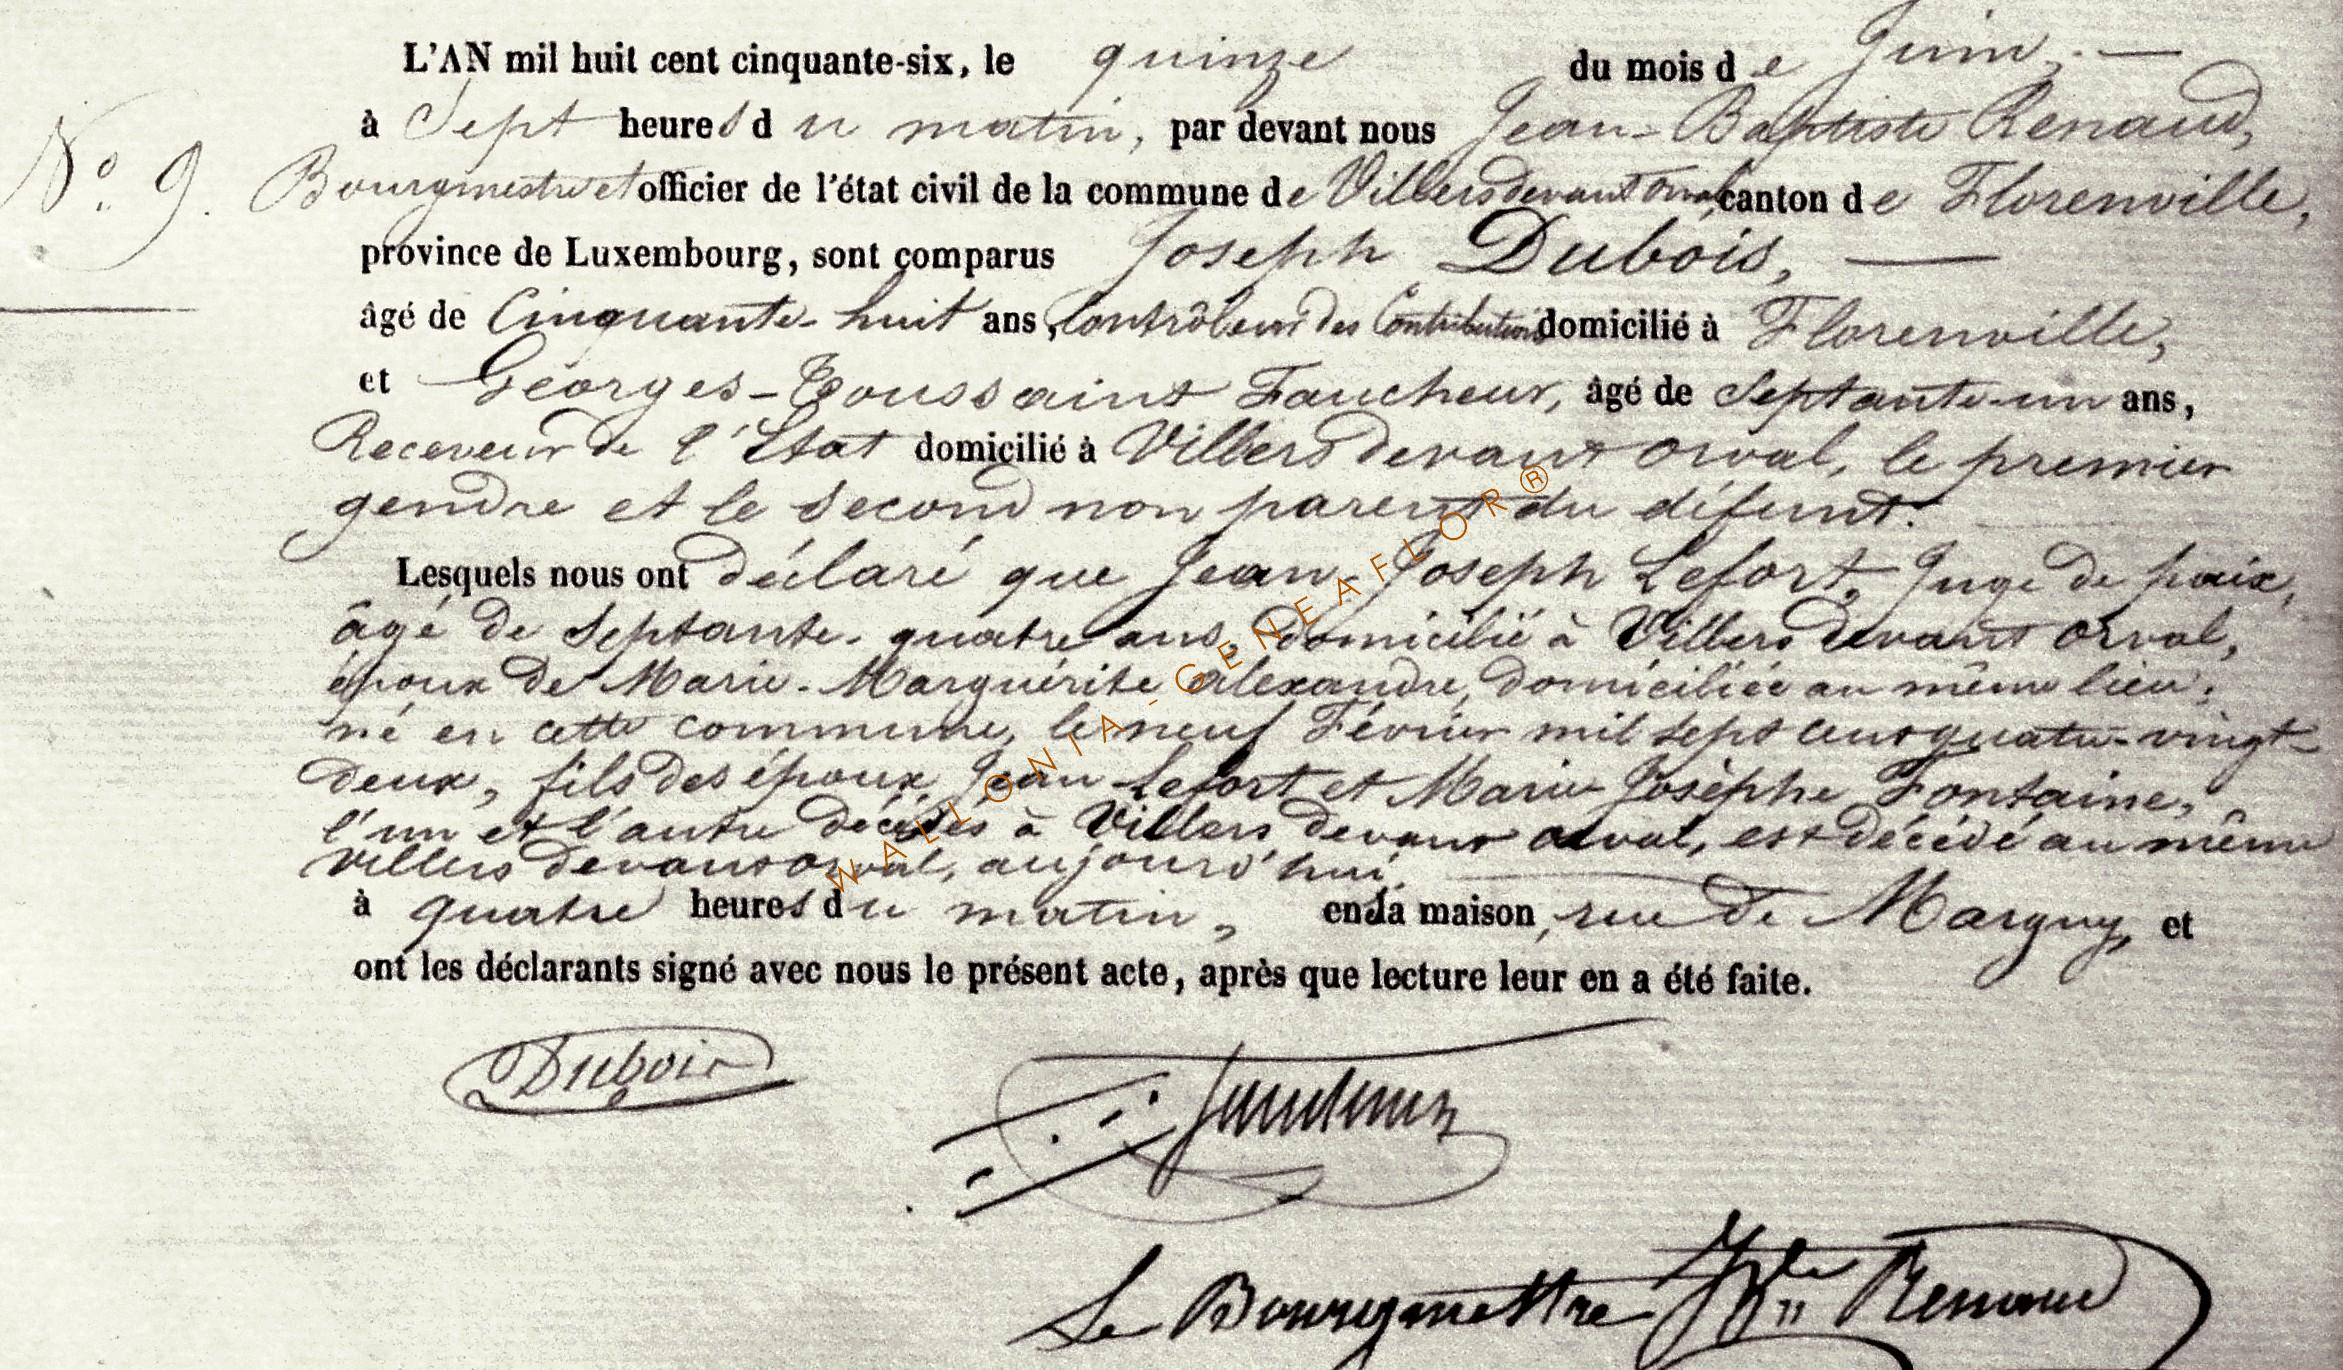 L'AN mil huit cent cinquante-six, le quinze du mois de Juin, —
à Sept heures du matin, par devant nous Jean-Baptiste Renaud,
N° 9. Bourgmestre et officier de l'état civil de la commune de Villers devant Orval, canton de Florenville,
province de Luxembourg, sont comparus Joseph Dubois, —
âgé de Cinquante-huit ans, Contrôleur des Contributions domicilié à Florenville,
et Georges-Toussaint Faucheur, âgé de Septante-un ans,
Receveur de l'Etat domicilié à Villers devant Orval, le premier
gendre et le second non parent du défunt.
Lesquels nous ont déclaré que Jean-Joseph Lefort, Juge de paix,
âgé de Septante-quatre ans, domicilié à Villers devant Orval,
époux de Marie-Marguérite Alexandre, domiciliée au même lieu,
né en cette commune, le neuf Février mil sept cent quatre-vingt-
deux, fils des époux Jean Lefort et Marie-Josèphe Fontaine,
l'un et l'autre décédés à Villers devant Orval, est décédé au même
Villers devant Orval, aujourd'hui
à quatre heures du matin, en sa maison, rue de Margny, et
ont les déclarants signé avec nous le présent acte, après que lecture leur en a été faite.
WALLONIA-GENEAFLOR®
Dubois
Le Bourgmestre Jn Bte Renaud